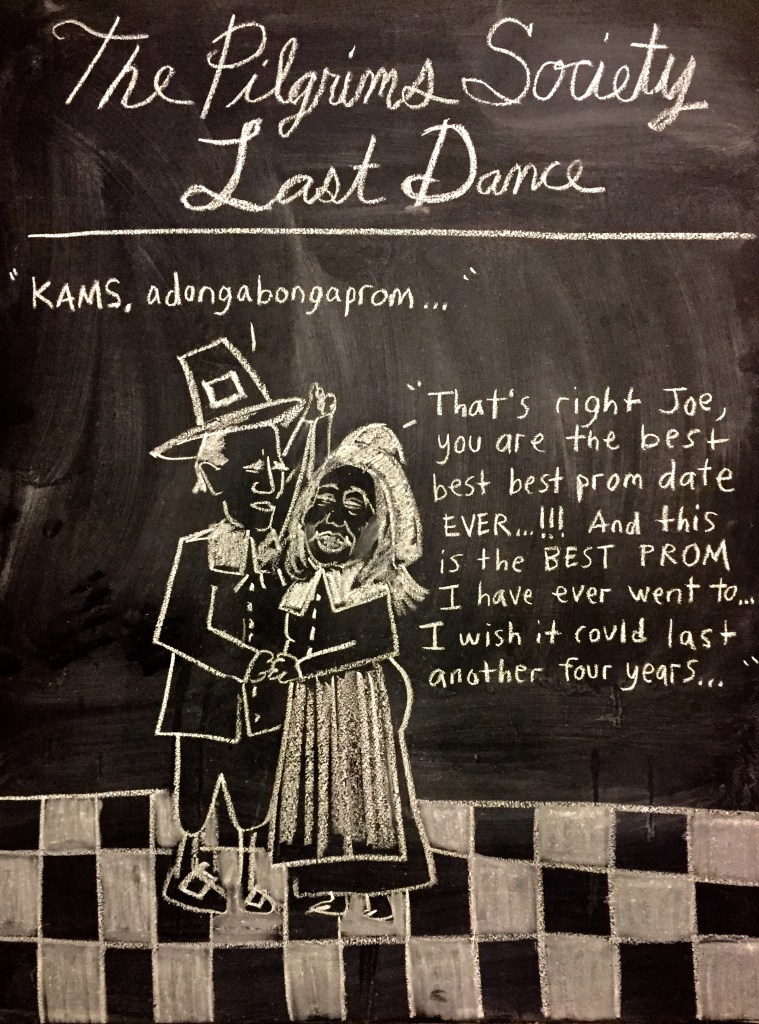 The Pilgrims Society
Last Dance
"KAMS, adongabongaprom..."
"That's right Joe,
you are the best
best best prom date
EVER...!!! And this
is the BEST PROM
I have ever went to...
I wish it could last
another four years..."